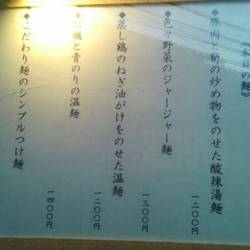 ◆豚肉と旬の炒め物をのせた酸辣湯麺
一二〇〇円
◆色々野菜のジャージャー麺
一三〇〇円
◆蒸し鶏のねぎ油がけをのせた温麺
一二〇〇円
と青のりの温麺
◆こだわり麺のシンプルつけ麺
一四〇〇円